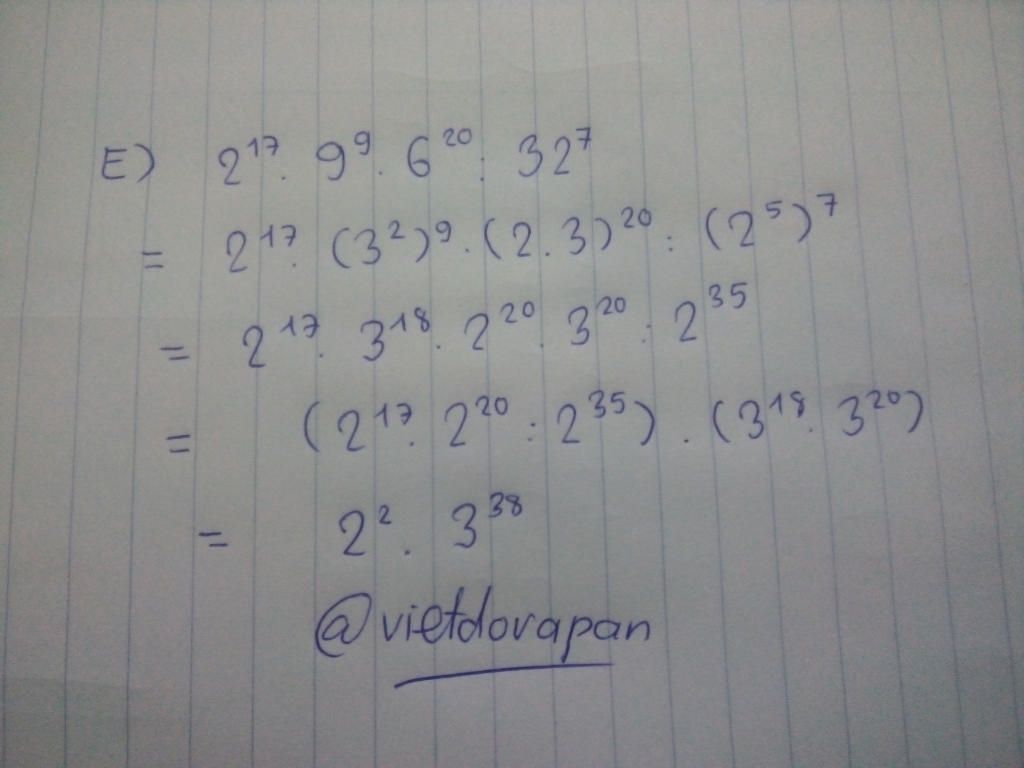 E) 2¹⁷. 9⁹. 6²⁰: 32⁷
= 2¹⁷. (3²)⁹. (2.3)²⁰: (2⁵)⁷
= 2¹⁷. 3¹⁸. 2²⁰. 3²⁰: 2³⁵
= (2¹⁷. 2²⁰: 2³⁵). (3¹⁸. 3²⁰)
= 2². 3³⁸
@vietdovapan